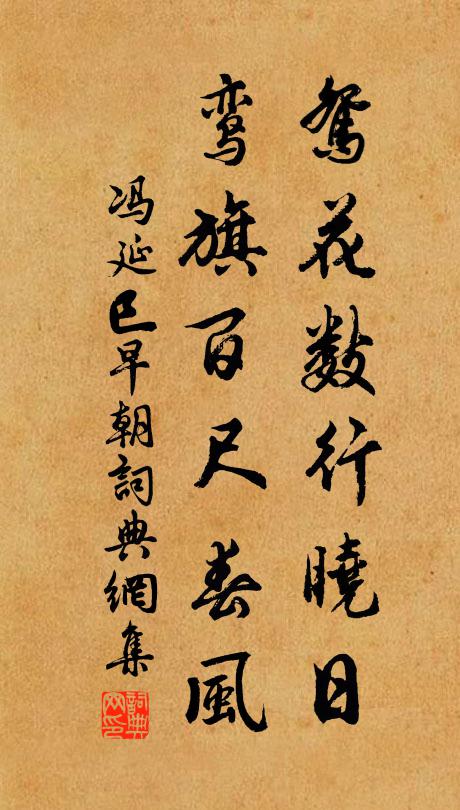 鸳花数行晓日
鸾旗百尺春風
冯延巳早朝詞典網集
詞典
网印